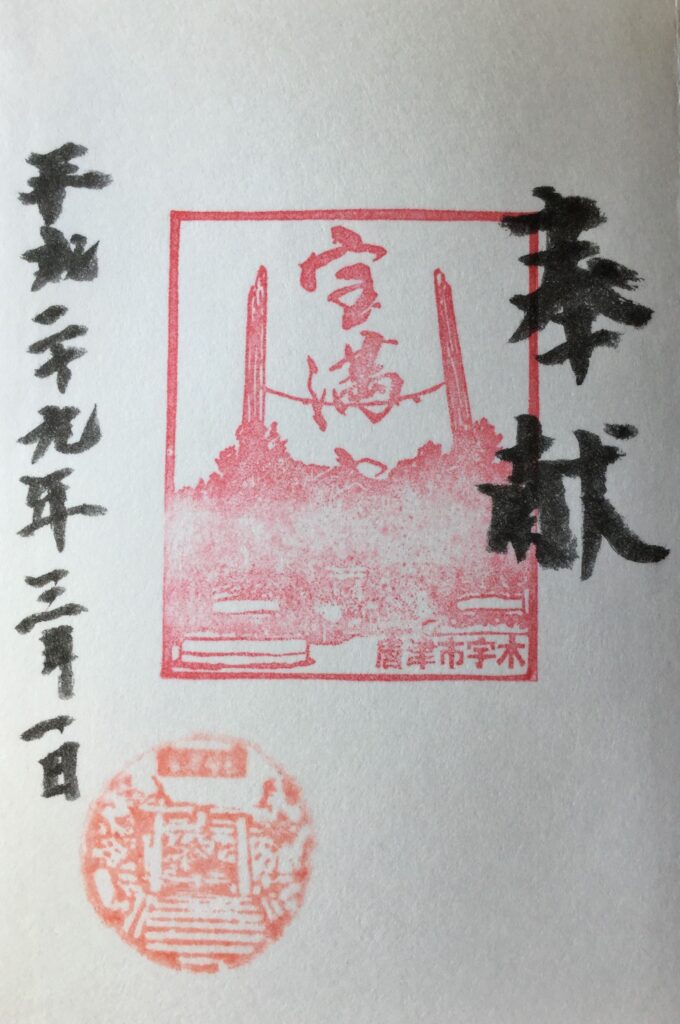 奉献
宝満
唐津市宇木
平成二十九年三月一日